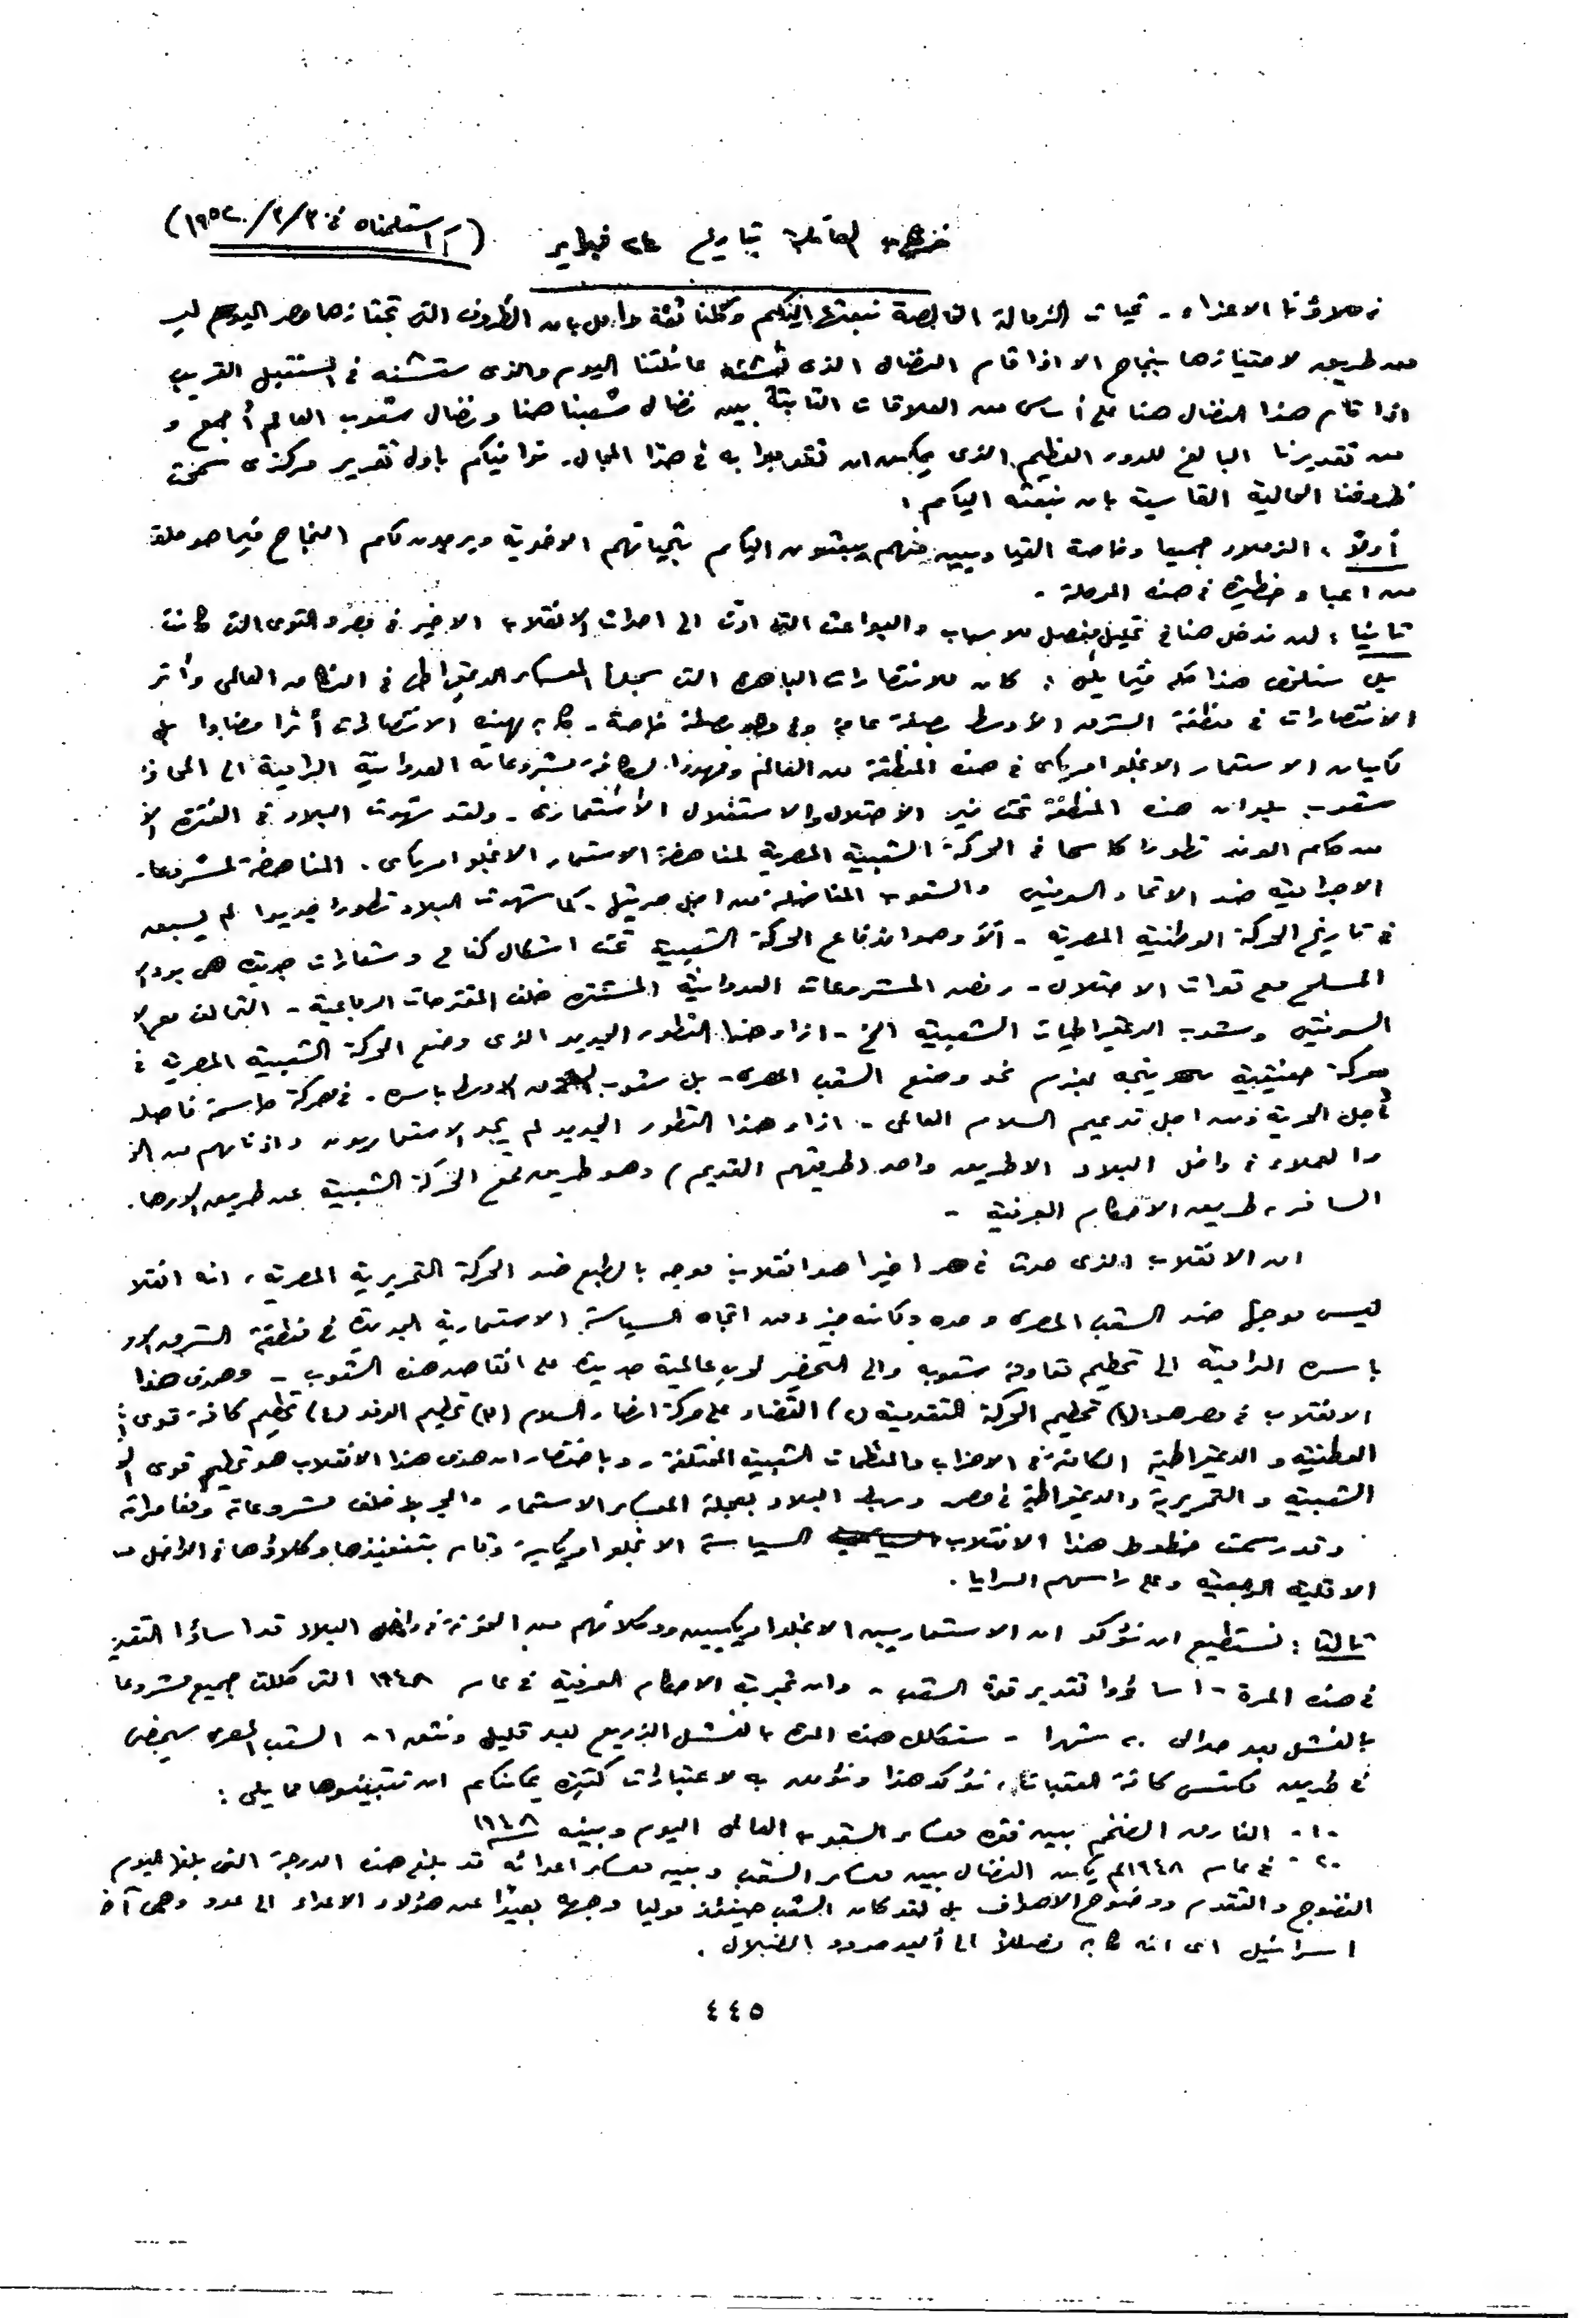 العائلة بتاريخ ٢٤ فبراير (استلمناه في ٣/٢/١٩٥٢)
زملاؤنا الاعزاء - تحيات الزمالة الخالصة نبعثها اليكم وكلنا ثقة وامل بان الظروف التى تجتازها مصر اليوم ليس
من طريق لاجتيازها بنجاح الا اذا قام النضال الذى تشنه عائلتنا اليوم والذى ستشنه فى المستقبل القريب
اذا قام هذا النضال هنا على أساس من العلاقات الثابتة بين نضال شعبنا هنا ونضال شعوب العالم أجمع و
من تقديرنا البالغ للدور العظيم الذى يمكن ان تقوموا به فى هذا المجال. نوافيكم باول تقرير مركزى سمحت
ظروفنا الحالية القاسية بان نبعثه اليكم :
أولا : الزملاء جميعا وخاصة القياديين منهم يبعثون اليكم بتحياتهم الاخوية ويرجون لكم النجاح فيما هو ملقى
من اعباء خطيرة فى هذه المرحلة -
ثانيا : لن ندخل هنا فى تحليل مفصل للاسباب والبواعث التى ادت الى احداث الانقلاب الاخير فى مصر والقوى التى كانت
بل سنلخص هذا كله فيما يلى : كان للانتصارات الباهرة التى سجلها المعسكر الديمقراطى فى النطاق العالمى وأثر
الانتصارات فى منطقة الشرق الأوسط بصفة عامة وفى مصر بصفة خاصة - كان لهذه الانتصارات أثرا مضادا على
كيان الاستعمار الانجلو امريكى فى هذه المنطقة من العالم ومهددا لكافة مشروعاته العدوانية الرامية الى
شعوب بلدان هذه المنطقة تحت نير الاحتلال والاستغلال الأستعمارى - ولقد شهدت البلاد فى الفترة
من حكم الوفد تطورا كاسحا فى الحركة الشعبية المصرية لمناهضة الاستعمار الانجلو امريكى. المناهضة لمشروعا
الاجرامية ضد الاتحاد السوفيتى والشعوب المناضلة من اجل حريتها - كما شهدت البلاد تطورا جديدا لم يسبق
فى تاريخ الحركة الوطنية المصرية - ألا وهو اندفاع الحركة الشعبية تحت اشكال كفاح وشعارات جديدة هى
المسلح مع قوات الاحتلال - رفض المشروعات العدوانية المستترة خلف المقترحات الرباعية - التحالف مع
السوفيتى وشعوب الديمقراطيات الشعبية الخ - ازاء هذا التطور الجديد الذى وضع الحركة الشعبية المصرية فى
معركة حقيقية يتجه بحزم نحو وضع الشعب المصرى - بل شعوب الشرق الاوسط باسره. فى معركة حاسمة فاصلة
أجل الحرية ومن اجل تدعيم السلام العالمى - ازاء هذا التطور الجديد لم يجد الاستعماريون واذنابهم من
والعملاء فى داخل البلاد الا طريق واحد (طريقهم القديم) وهو طريق قمع الحركة الشعبية عن طريق الارها
السافر، طريق الاحكام العرفية -
ان الانقلاب الذى حدث فى مصر اخيرا هو انقلاب موجه بالطبع ضد الحركة التحريرية المصرية، انه انقلا
ليس موجها ضد الشعب المصرى وحده ولكنه جزء من اتجاه السياسة الاستعمارية الجديدة فى منطقة الشرق
باسره الرامية الى تحطيم مقاومة شعوبه والى التحضير لحرب عالمية جديدة على انقاض هذه الشعوب - وهدف هذا
الانقلاب فى مصر هو (١) تحطيم الحركة التقدمية (٢) القضاء على حركة انصار السلام (٣) تحطيم الوفد (٤) تحطيم كافة قوى
الوطنية والديمقراطية الكامنة فى الاحزاب والمنظمات الشعبية المختلفة - وباختصار ان هدف هذا الانقلاب هو تحطيم قوى
الشعبية والتحريرية والديمقراطية فى مصر وربط البلاد بعجلة المعسكر الاستعمار والجر بها خلف مشروعاته ومغامراته
وقد رسمت خطوط هذا الانقلاب السياسة الانجلو امريكية وقام بتنفيذها وكلاؤها فى الداخل من
الاقلية الرجعية وعلى راسهم السرايا.
ثالثا : نستطيع ان نؤكد ان الاستعماريين الانجلو امريكيين ووكلائهم من الخونة فى داخل البلاد قد اساؤا التقدير
فى هذه المرة - اساؤوا تقدير قوة الشعب - وان تجربة الاحكام العرفية فى عام ١٩٤٨ التى كللت جميع مشروعا
بالفشل بعد حوالى ٢٠ شهرا - ستكلل هذه المرة بالفشل الذريع بعد قليل ونثق ان الشعب المصرى سيمضى
فى طريقه مكتسحا كافة العقبات، نؤكد هذا ونؤمن به لاعتبارات كثيرة يمكنكم ان تتبينوها مما يلى :
-١- الفارق الضخم بين قوة معسكر الشعوب العالمى اليوم وبينه ١٩٤٨
-٢- فى عام ١٩٤٨ لم يكن النضال بين معسكر الشعب وبين معسكر اعدائه قد بلغ هذه الدرجة التى بلغها اليوم
النضوج والتقدم ووضوح الاهداف بل لقد كان الشعب حينئذ موليا وجهه بعيدا عن هؤلاء الاعداء الى عدو وهمى آخر
اسرائيل اى انه كان مضللا الى أبعد حدود الضلال.
٤٤٥